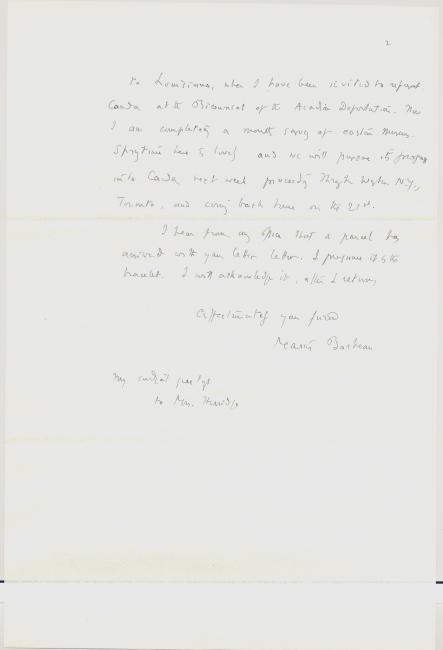 2
to Louisiana, when I have been invited to represent
Canada at the Bicentennial of the Acadian Deportation. Now
I am completing a month survey of eastern museums.
Springtime here is lovely and we will pursue its progress
into Canada next week proceeding through N.Y.,
Toronto, and coming back home on the 21st.
I hear from my office that a parcel has
arrived with your letter. I presume it is the
bracelet. I will acknowledge it, after I return,
Affectionately your friend
Marius Barbeau
My greetings
to Mrs.